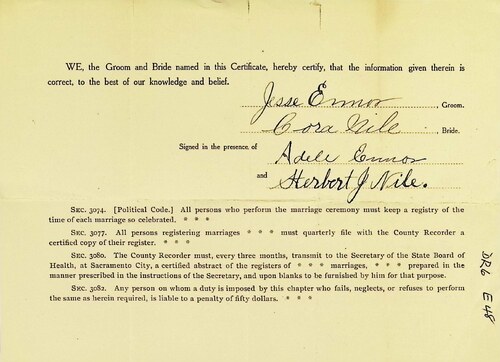 WE, the Groom and Bride named in this Certificate, hereby certify, that the information given therein is
correct, to the best of our knowledge and belief.
Jesse Ennor , Groom.
Cora Nile , Bride.
Signed in the presence of
Adele Ennor
and Herbert J Nile.
SEC. 3074. [Political Code.] All persons who perform the marriage ceremony must keep a registry of the
time of each marriage so celebrated. * * *
SEC. 3077. All persons registering marriages * * * must quarterly file with the County Recorder
a certified copy of their register. * * *
SEC. 3080. The County Recorder must, every three months, transmit to the Secretary of the State Board of
Health, at Sacramento City, a certified abstract of the registers of * * * marriages, * * * prepared in the
manner prescribed in the instructions of the Secretary, and upon blanks to be furnished by him for that purpose.
SEC. 3082. Any person on whom a duty is imposed by this chapter who fails, neglects, or refuses to perform
the same as herein required, is liable to a penalty of fifty dollars. * * *
DR6 E48